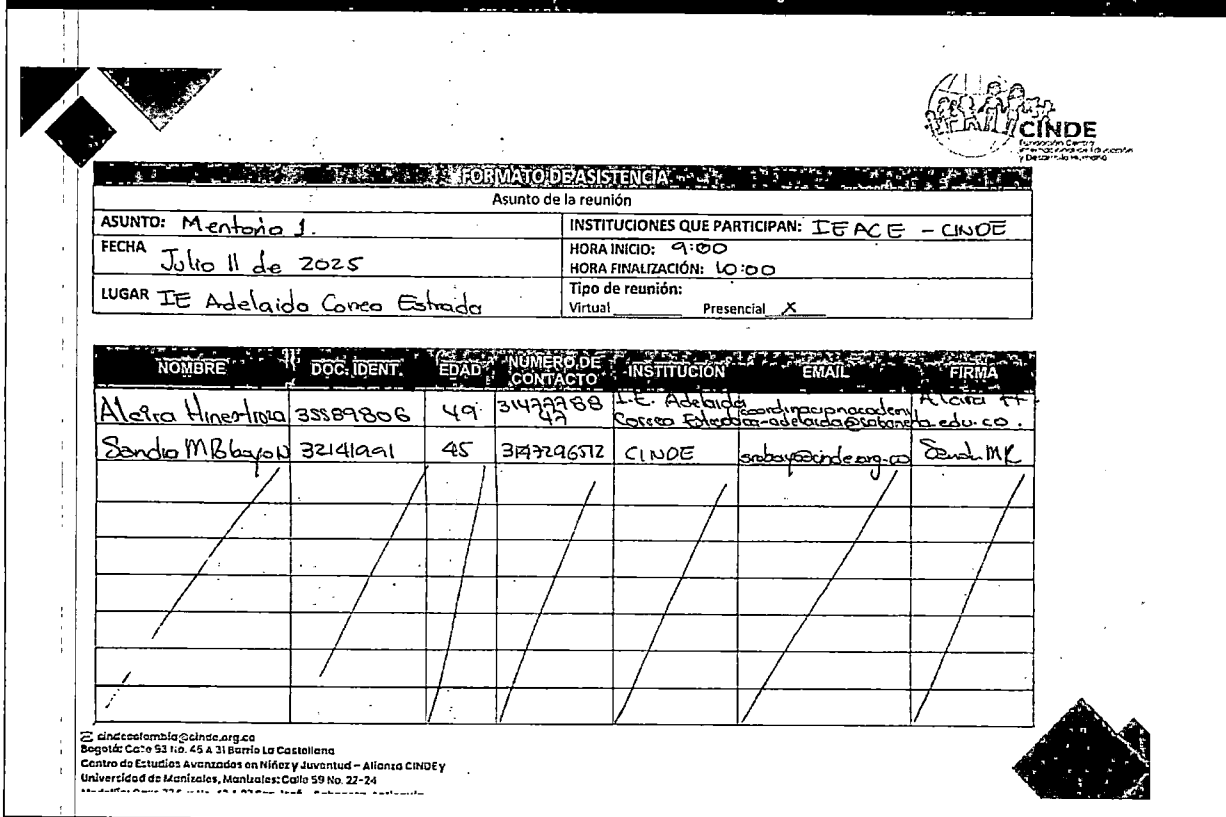 CINDE
Fundación Centro
Internacional de Educación
y Desarrollo Humano
FORMATO DE ASISTENCIA
Asunto de la reunión
ASUNTO: Mentoria 1.
INSTITUCIONES QUE PARTICIPAN: IEACE - CINDE
FECHA Julio 11 de 2025
HORA INICIO: 9:00
HORA FINALIZACIÓN: 10:00
LUGAR IE Adelaida Correa Estrada
Tipo de reunión:
Virtual Presencial X
NOMBRE DOC. IDENT. EDAD NÚMERO DE CONTACTO INSTITUCIÓN EMAIL FIRMA
Alcira Hinestroza 35589806 49 3147778847 I.E. Adelaida Correa Estrada Alcira H
Sandra M 32141991 45 3147296512 CINDE Sandra MR
cindecolombia@cinde.org.co
Bogotá: Calle 93 No. 45 A 31 Barrio La Castellana
Centro de Estudios Avanzados en Niñez y Juventud – Alianza CINDE y
Universidad de Manizales, Manizales: Calle 59 No. 22-24